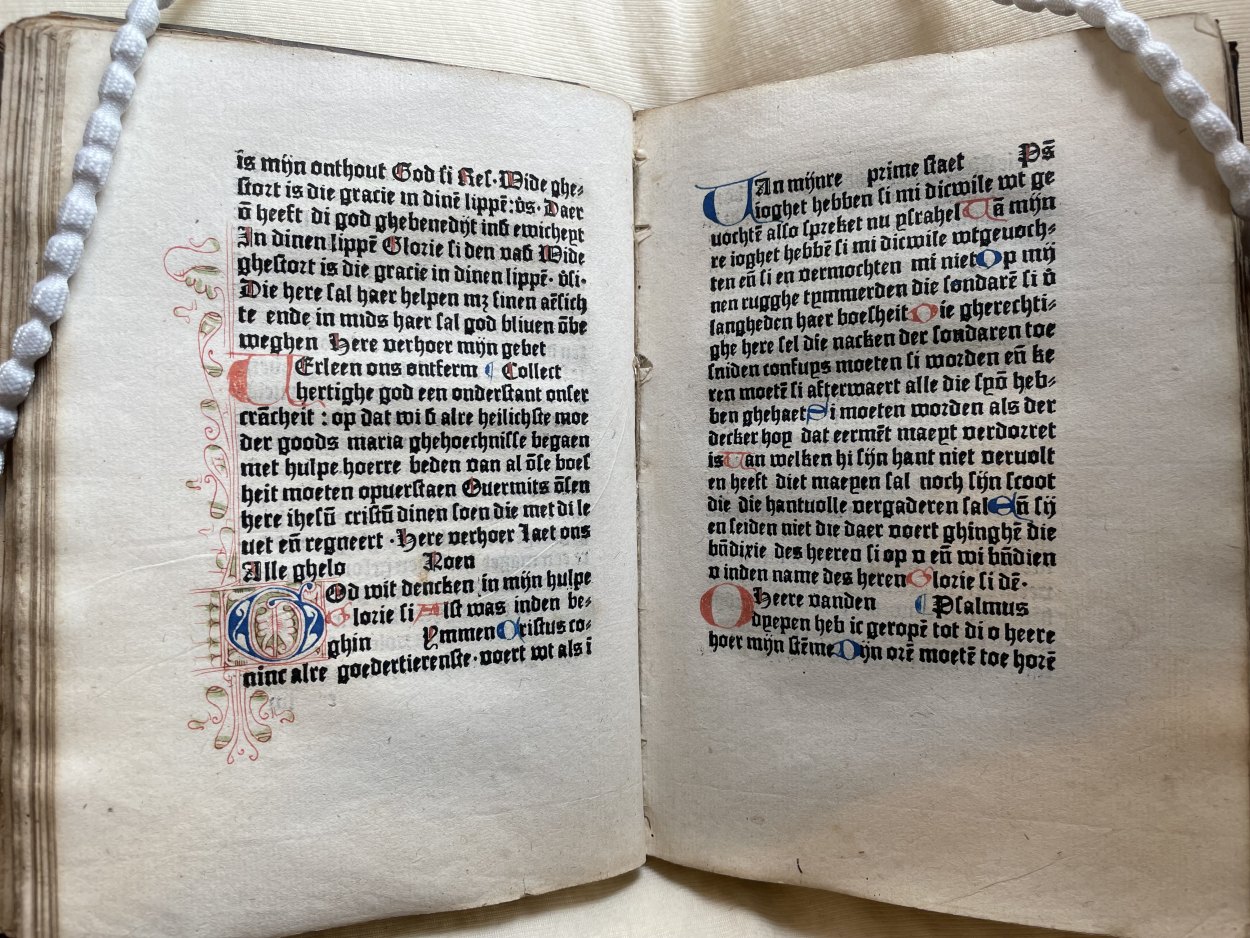 is mijn onthout God si Res· Wide ghe⸗
stort is die gracie in dinē lippē: v̄s· Daer
ō heeft di god ghebenedijt inδ ewicheyt
In dinen lippē Glorie si den vaδ Wide
ghestort is die gracie in dinen lippē· v̄si·
Die here sal haer helpen mʒ sinen aēsich
te ende in mids haer sal god bliuen ōbe
weghen Here verhoer mijn gebet
VErleen ons ontferm ¶ Collect
hertighe god een onderstant onser
crācheit : op dat wi δ alre heilichste moe
der goods maria ghehoechnisse begaen
met hulpe hoerre beden van al ōse boes
heit moeten opuerstaen Ouermits ōsen
here ihesū cristū dinen soen die met di le
uet eñ regneert · Here verhoer Laet ons
Alle ghelo Noen
GOd wit dencken in mijn hulpe
Glorie si Alst was inden be⸗
ghin Ymmen Cristus co⸗
ninc alre goedertierenste· voert wt als ī
prime staet Ps̄
VAn mijnre
ioghet hebben si mi dicwile wt ge
uochtē also spreket nu ysrahel Vā mijn
re ioghet hebbē si mi dicwile wtgeuoch⸗
ten eñ si en vermochten mi niet Op mij
nen rugghe tymmerden die sondarē si v̄
langheden haer boesheit Die gherechti⸗
ghe here sel die nacken der sondaren toe
sniden confuys moeten si worden eñ ke
ren moetē si afterwaert alle die syō heb⸗
ben ghehaet Si moeten worden als der
decker hoy dat eermēt maeyt verdorret
is Van welken hi sijn hant niet vervolt
en heeft diet maeyen sal noch sijn scoot
die die hantuolle vergaderen sal Eñ sij
en seiden niet die daer voert ghinghē die
bn̄dixie des heeren si op v eñ wi bn̄dien
v inden name des heren Glorie si dē·
OHeere vanden ¶ Psalmus
dyepen heb ic geropē tot di o heere
hoer mijn stēme Dijn orē moetē toe horē